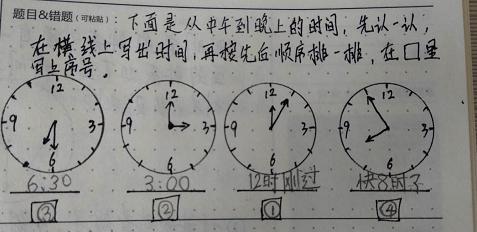 题目&错题（可粘贴）：下面是从中午到晚上的时间，先认一认，
在横线上写出时间，再按先后顺序排一排，在□里
写上序号。
12 12 12 12
9 3 9 3 9 3 9 3
6 6 6 6
6:30 3:00 12时刚过 快8时了
③ ② ① ④